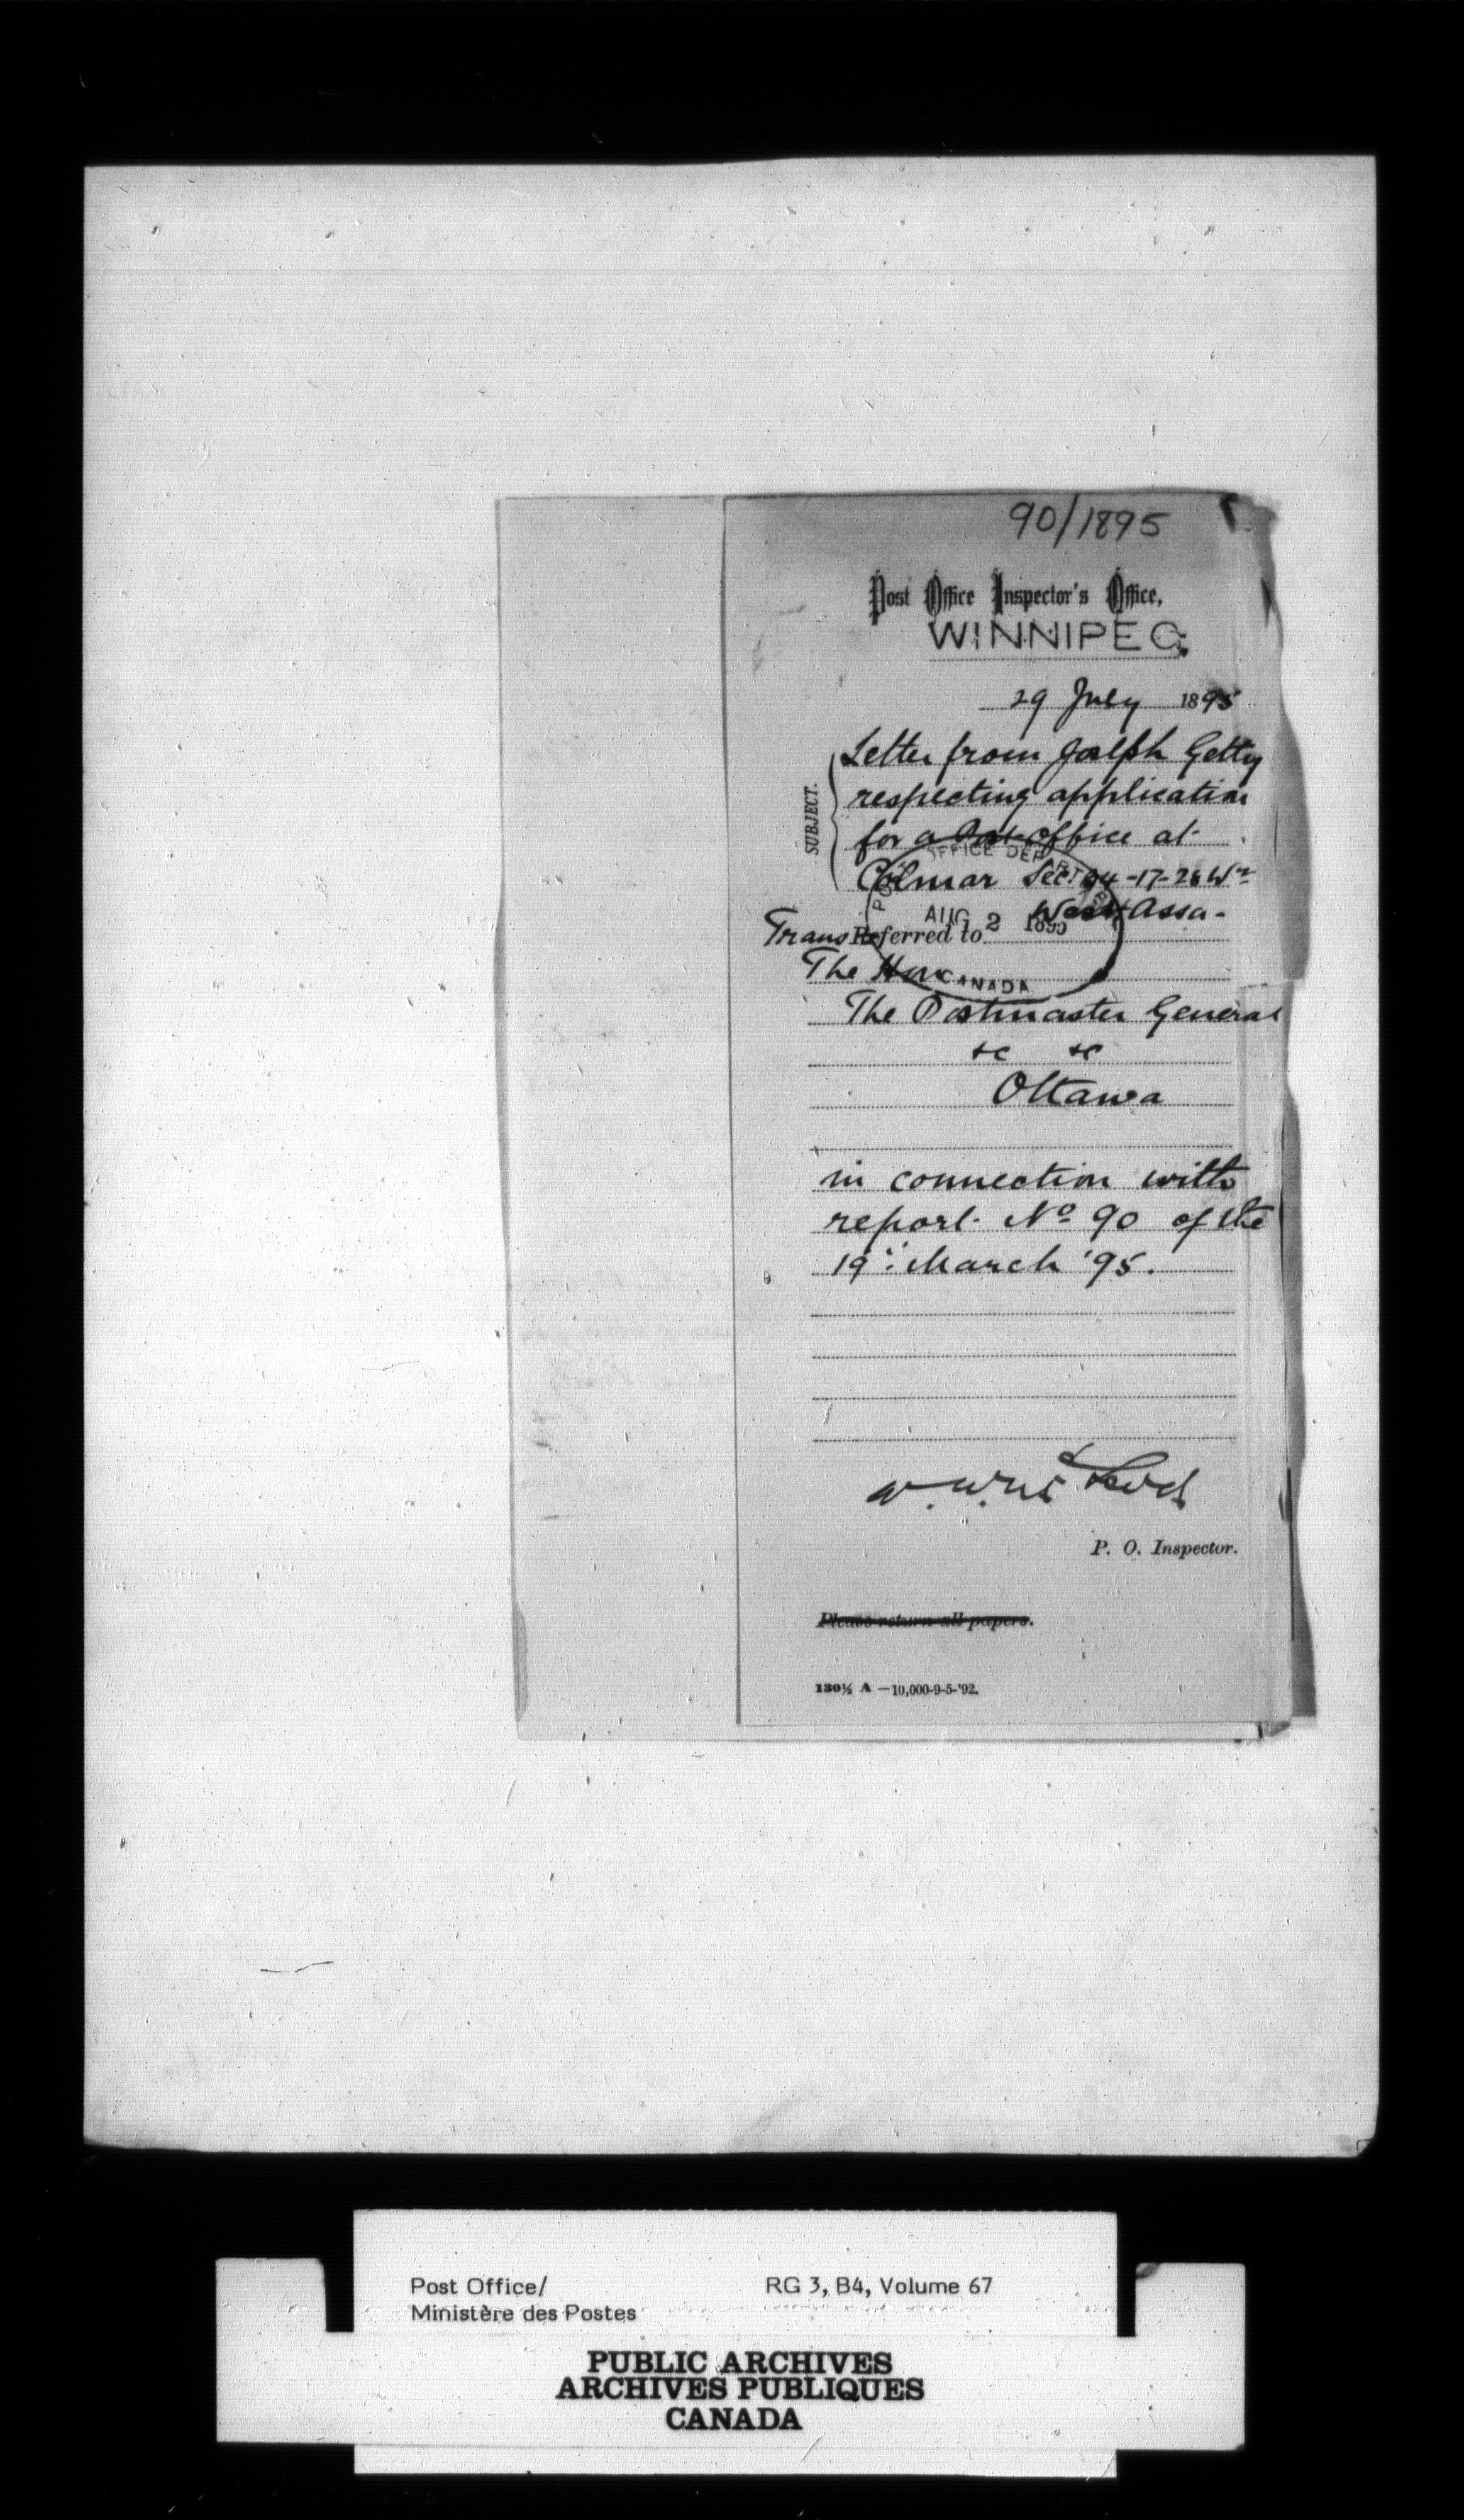 90/1895
Post Office Inspector's Office,
WINNIPEG.
29 July 1895
SUBJECT.
Letter from Joseph Getty
respecting application
for a Post Office at
Colmar Sec. 24-17-28 W2
West Assa-
POST OFFICE DEPARTMENT
AUG 2 1895
CANADA
Trans Referred to
The Hon
The Postmaster General
&c &c
Ottawa
in connection with
report No 90 of the
19th March '95.
W. W. McLeod
P. O. Inspector.
Please return all papers.
130½ A —10,000-9-5-'92.
Post Office/
Ministère des Postes
RG 3, B4, Volume 67
PUBLIC ARCHIVES
ARCHIVES PUBLIQUES
CANADA